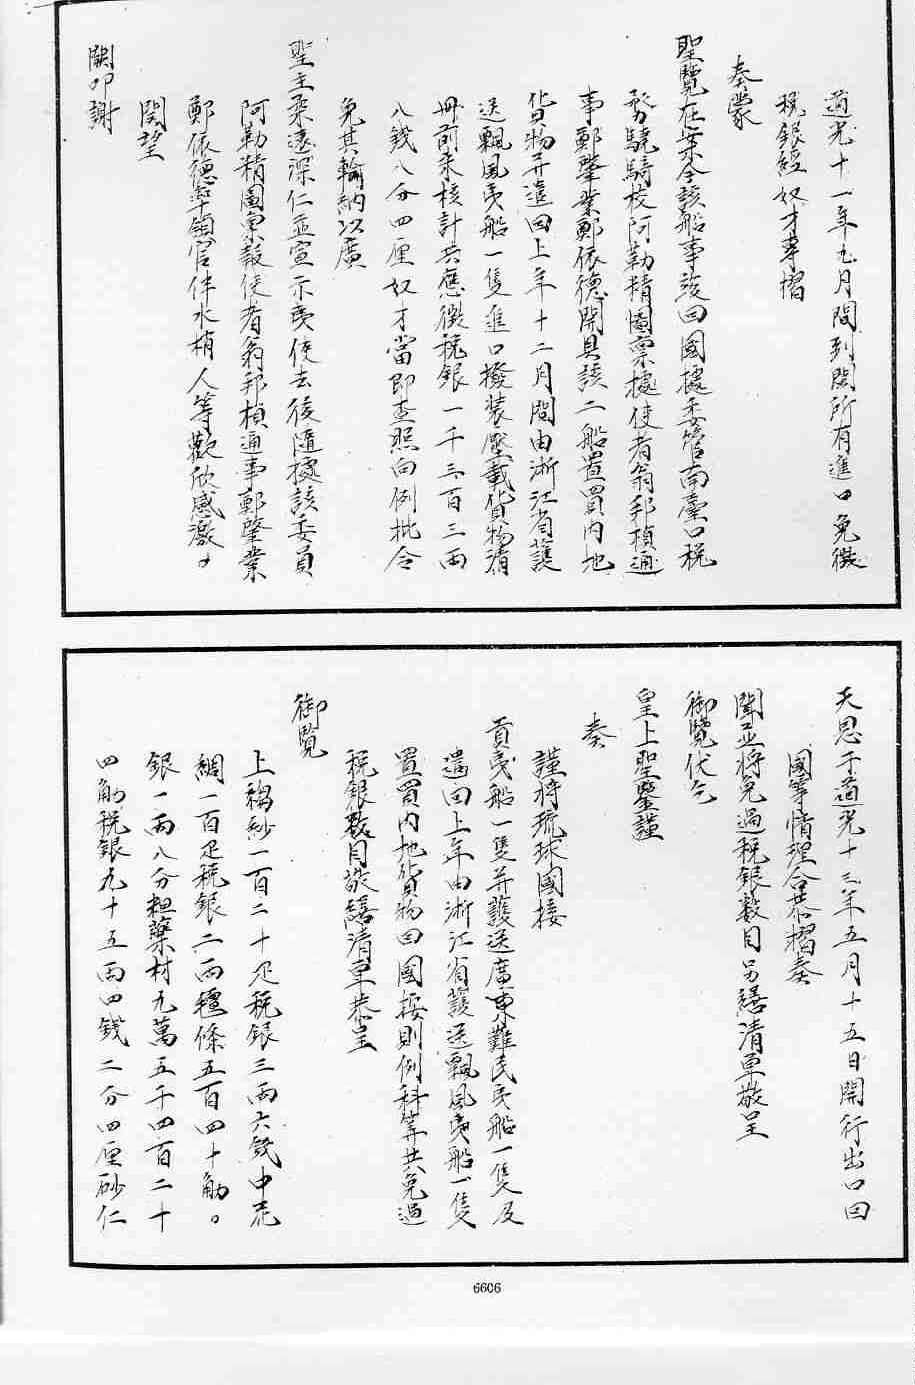 道光十一年九月間到關所有進口免徵
稅銀經奴才專摺
奏蒙
聖覽在案今該船事竣回國據委管南臺口稅
務驍騎校阿勒精圖稟據使者翁邦楨通
事鄭肇業鄭依德開具該二船置買內地
貨物并遣回上年十二月間由浙江省護
送飄風夷船一隻進口撥裝壓載貨物清
冊前來核計共應徵稅銀一千三百三兩
八錢八分四厘奴才當即查照向例批令
免其輸納以廣
聖主柔遠深仁並宣示夷使去後隨據該委員
阿勒精圖稟報使者翁邦楨通事鄭肇業
鄭依德率領官伴水梢人等歡欣感激
關望
闕叩謝
天恩于道光十三年五月十五日開行出口回
國等情理合恭摺奏
聞並將免過稅銀數目另繕清單敬呈
御覽伏乞
皇上聖鑒謹
奏
謹將琉球國接
貢夷船一隻并護送廣東難民夷船一隻及
遣回上年由浙江省護送飄風夷船一隻
置買內地貨物回國按則例科算共免過
稅銀數目敬繕清單恭呈
御覽
上縐紗一百二十疋稅銀三兩六錢中花
綢一百疋稅銀二兩 條五百四十觔
銀一兩八分粗藥材九萬五千四百二十
四觔稅銀九十五兩四錢二分四厘砂仁
6606